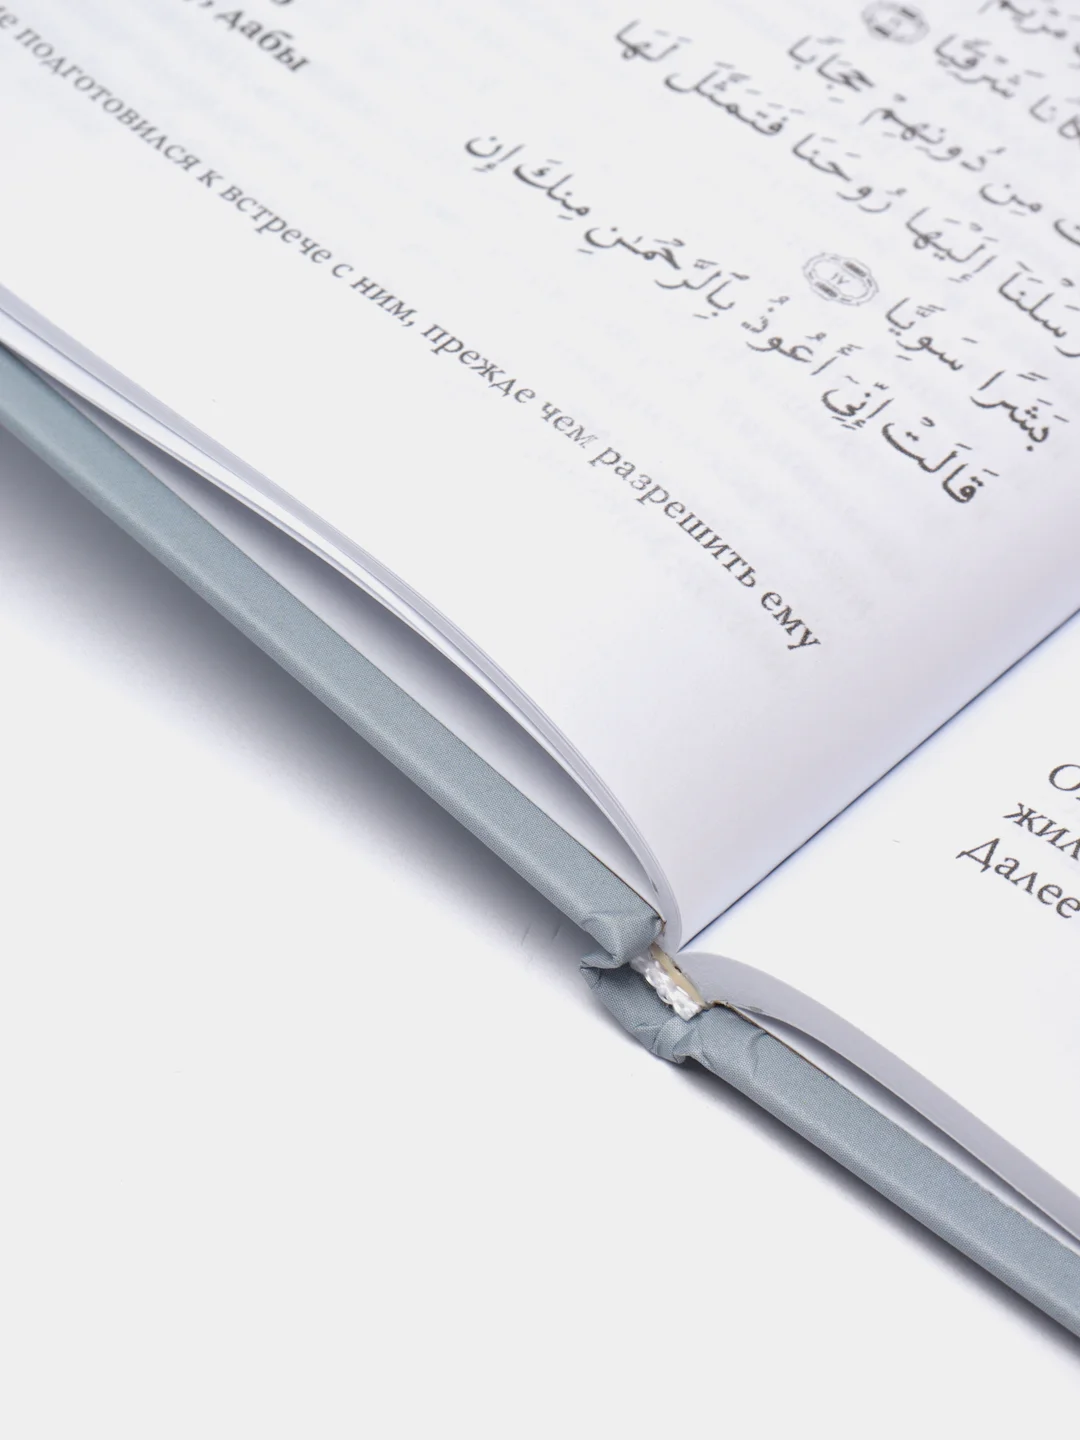 مَرْيَمَ
مَكَانًا شَرْقِيًّا ١٦
مِن دُونِهِمْ حِجَابًا
أَرْسَلْنَآ إِلَيْهَا رُوحَنَا فَتَمَثَّلَ لَهَا
بَشَرًا سَوِيًّا ١٧
قَالَتْ إِنِّىٓ أَعُوذُ بِٱلرَّحْمَٰنِ مِنكَ إِن
, дабы
не подготовился к встрече с ним, прежде чем разрешить ему
жил
Далее